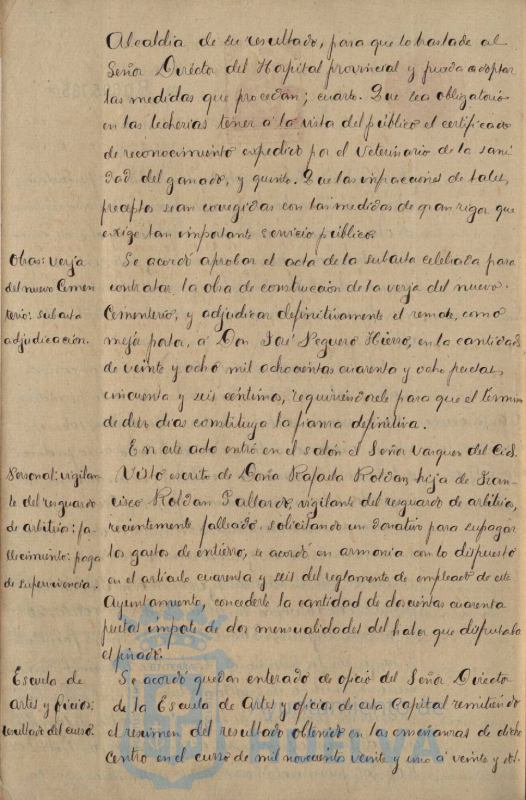 Alcaldia de su resultado, para que lo traslade al
Señor Director del Hospital provincial y pueda adoptar
las medidas que procedan; cuarto. Que sea obligatorio
en las lecherias tener á la vista del público el certificado
de reconocimiento expedido por el Veterinario de la sani
dad del ganado, y quinto. Que las infracciones de tales,
preceptos sean corregidas con las medidas de gran rigor que
exige tan importante servicio público.
Obras: verja
del nuevo Cemen
terio: subasta
adjudicación.
Se acordó aprobar el acta de la subasta celebrada para
contratar la obra de construcción de la verja del nuevo
Cementerio, y adjudicar definitivamente el remate, como
mejor postor, á Don José Peguero Hierro, en la cantidad
de veinte y ocho mil ochocientas cuarenta y ocho pesetas,
cincuenta y seis céntimos, requiriendosele para que el termino
de diez dias constituya la fianza definitiva.
En este acto entró en el salón el Señor Vazquez del Cid.
Personal: vigilan
te del resguardo
de arbitrios: fa-
llecimiento: paga
de supervivencia.
Visto escrito de Doña Rafaela Roldan, hija de Fran-
cisco Roldan Gallardo, vigilante del resguardo de arbitrios,
recientemente fallecido, solicitando un donativo para sufragar
los gastos de entierro, se acordó en armonia con lo dispuesto
en el articulo cuarenta y seis del reglamento de empleados de este
Ayuntamiento, concederle la cantidad de doscientas cuarenta
pesetas importe de dos mensualidades del haber que disfrutaba
el finado.
Escuela de
Artes y Oficios:
resultado del curso.
Se acordó quedar enterado de oficio del Señor Director
de la Escuela de Artes y oficios de esta Capital remitiendo
el resumen del resultado obtenido en las enseñanzas de dicho
Centro en el curso de mil novecientos veinte y uno á veinte y dos.
HUELVA